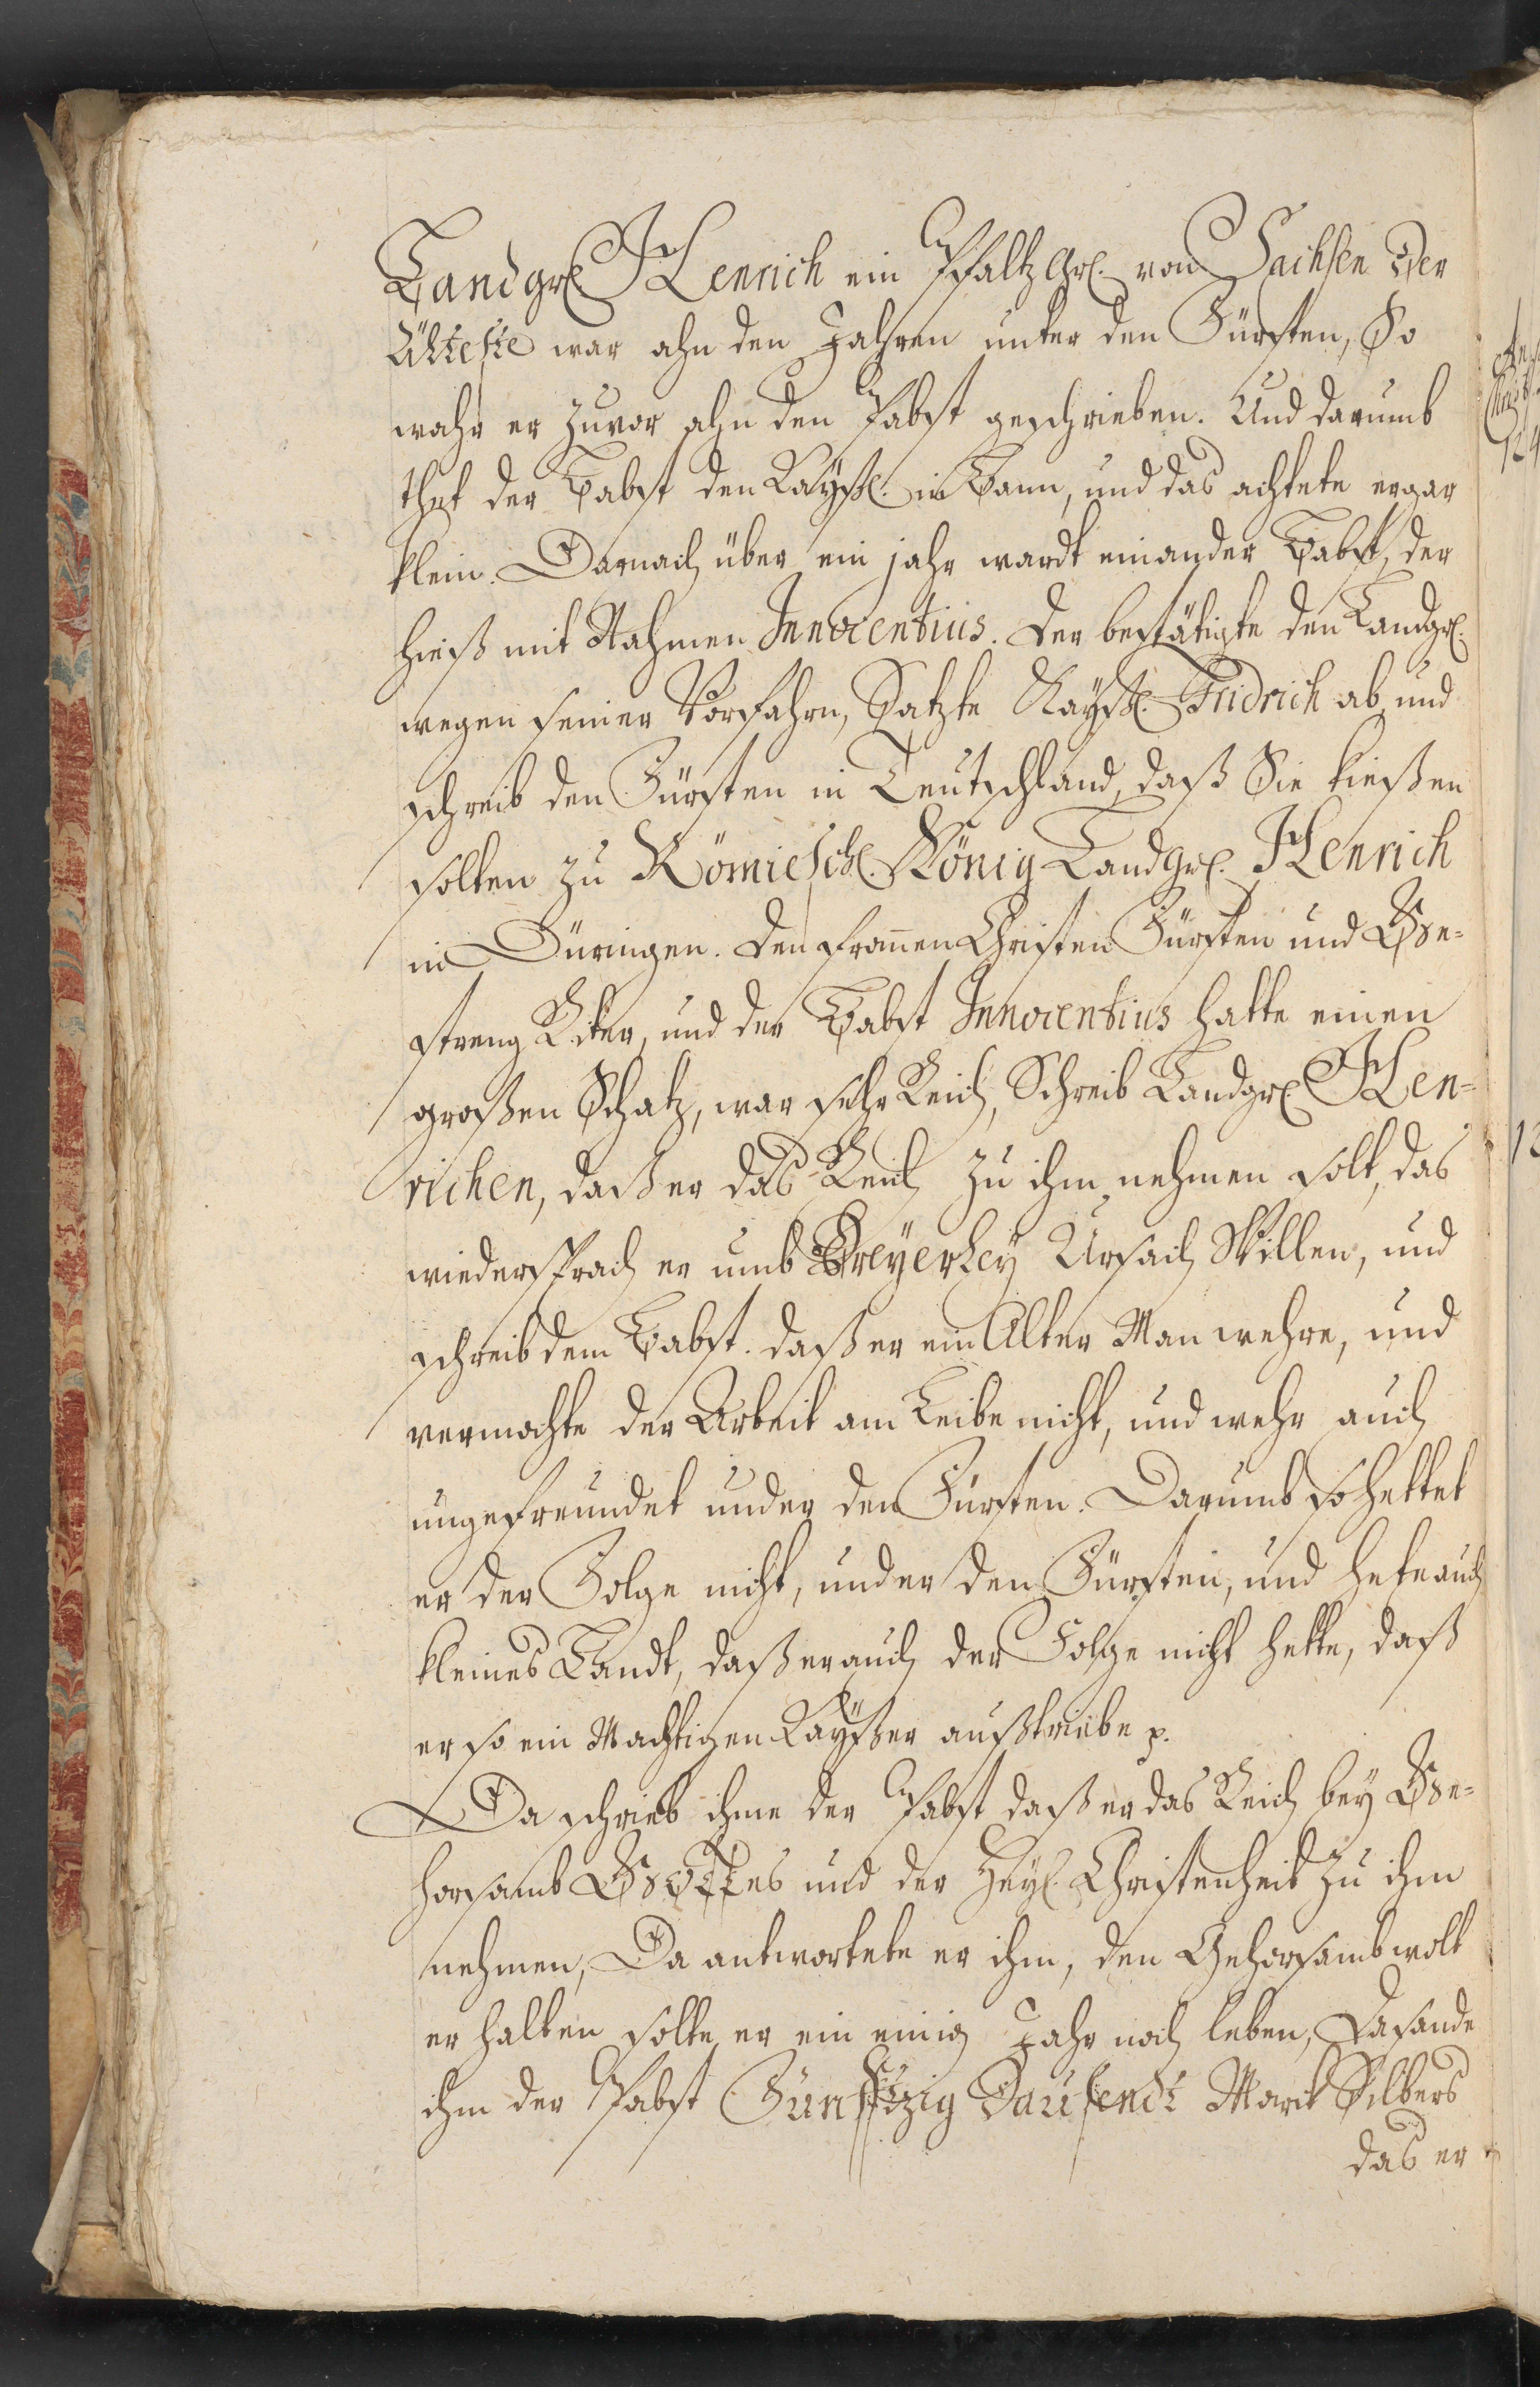 Landgr. Henrich ein Pfaltzgr. von Sachsen der
Älteste war ahn den Jahren unter den Fürsten, So
wahr er zuvor ahn den Pabst geschrieben. Und darumb
thet der Pabst den Kayß. in Bann, und das achtete er gar
klein. Darnach über ein jahr wardt ein ander Pabst, der
hieß mit Nahmen Innocentius. Der bestätigte den Landgr.
wegen seiner Vorfahrn, Satzte Kayß. Fridrich ab, und
schreib den Fürsten in Teutschland, daß Sie kießen
solten zu Römisch. König Landgr. Henrich
in Düringen. Den from̄en Christen Fürsten und Ge-
streng Riter, und der Pabst Innocentius hatte einen
großen Schatz, war sehr Reich, Schreib Landgr. Hen-
richen, daß er das Reich zu ihm nehmen solt, das
wiedersprach er umb Dreyerley Ursach Willen, und
schreib dem Pabst. daß er ein Alter Man wehre, und
vermochte der Arbeit am Leibe nicht, und wehr auch
ungefreundet under den Fürsten. Darumb so hettet
er der Folge nicht, under den Fürsten, und hete auch
kleines Landt, daß er auch der Folge nicht hette, daß
er so ein Machtigen Kayßer außtriebe p.
Da schrieb ihme der Pabst daß er das Reich bey Ge-
horsamb Gottes und der Heyl. Christenheit zu ihm
nehmen, Da antwortete er ihm, den Gehorsamb wolt
er halten solte er ein einig Jahr noch leben, Da sande
ihm der Pabst Fünfftzig Dausendt Marck Silbers
das er